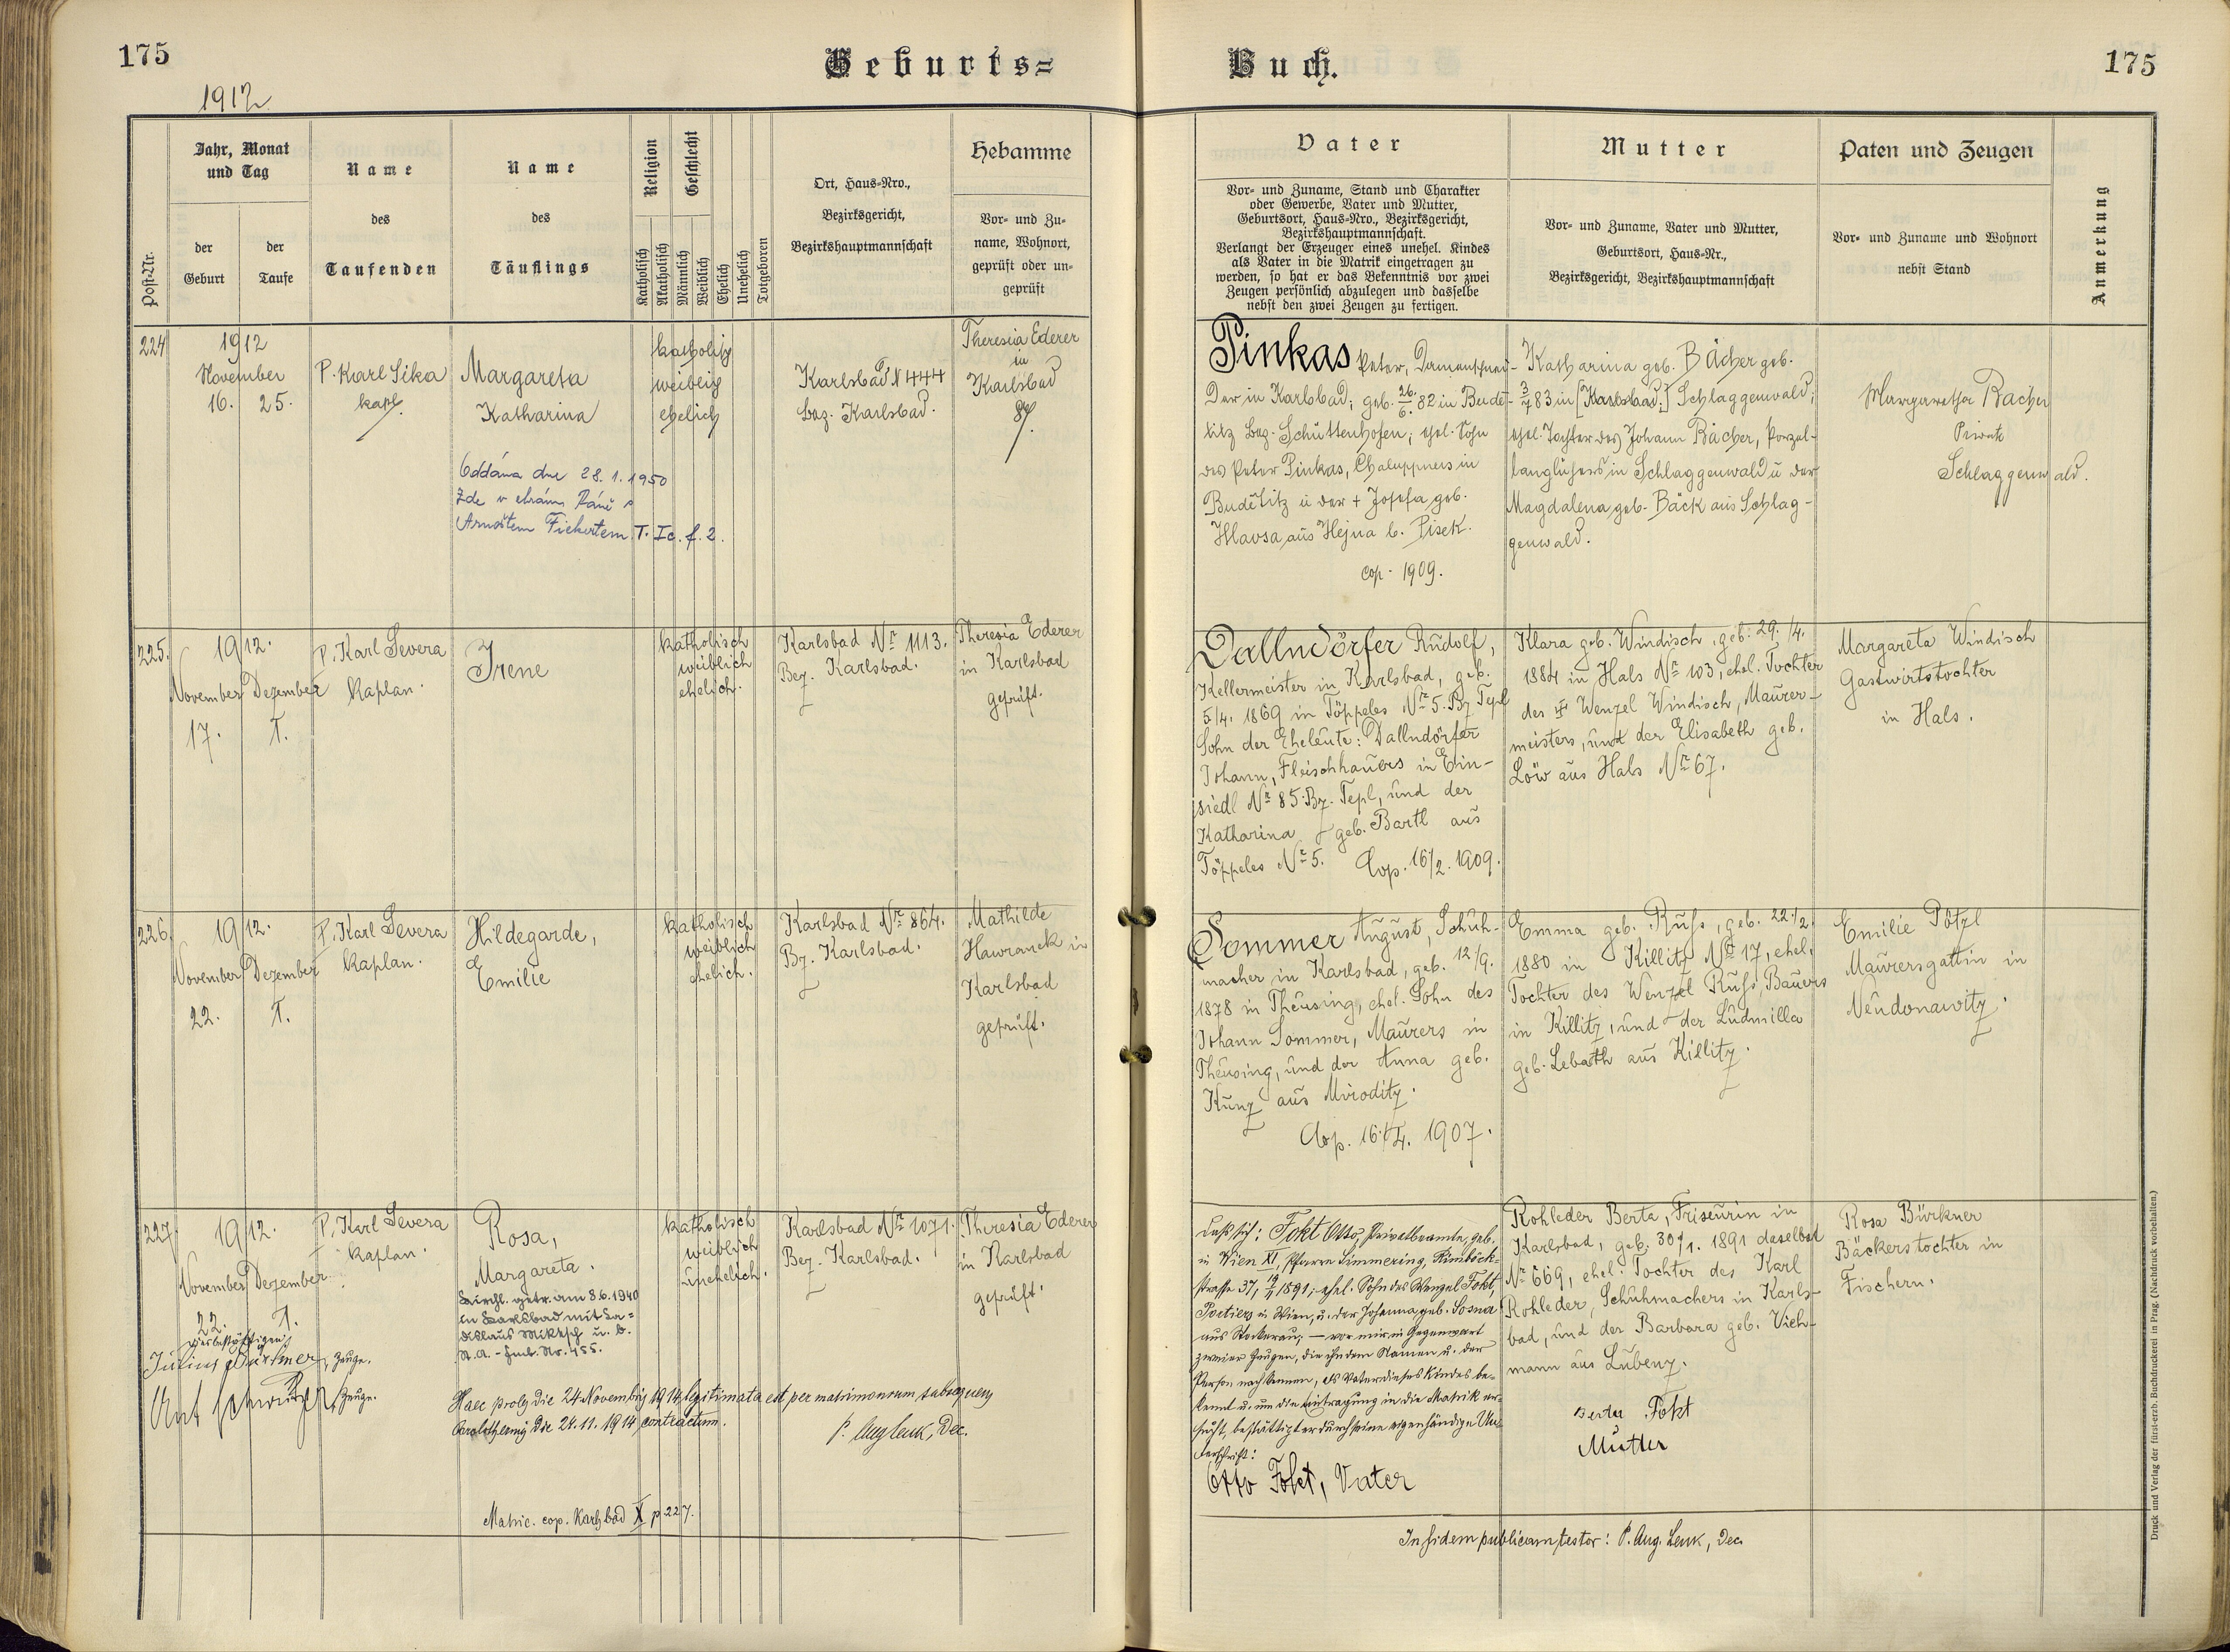 175
Geburts=
Buch.
175
1912
Post-Nr.
Jahr, Monat
und Tag
der
Geburt
der
Taufe
Name
des
Taufenden
Name
des
Täuflings
Religion
Katholisch
Akatholisch
Geschlecht
Männlich
Weiblich
Ehelich
Unehelich
Totgeboren
Ort, Haus-Nro.,
Bezirksgericht,
Bezirkshauptmannschaft
Hebamme
Vor- und Zu-
name, Wohnort,
geprüft oder un-
geprüft
Vater
Vor- und Zuname, Stand und Charakter
oder Gewerbe, Vater und Mutter,
Geburtsort, Haus-Nro., Bezirksgericht,
Bezirkshauptmannschaft.
Verlangt der Erzeuger eines unehel. Kindes
als Vater in die Matrik eingetragen zu
werden, so hat er das Bekenntnis vor zwei
Zeugen persönlich abzulegen und dasselbe
nebst den zwei Zeugen zu fertigen.
Mutter
Vor- und Zuname, Vater und Mutter,
Geburtsort, Haus-Nr.,
Bezirksgericht, Bezirkshauptmannschaft
Paten und Zeugen
Vor- und Zuname und Wohnort
nebst Stand
Anmerkung
224
1912
November
16. 25.
P. Karl Sika
kapl.
Margareta
Katharina
katholisch
weiblich
ehelich
Karlsbad N 444
bez. Karlsbad.
Theresia Ederer
in
Karlsbad
Oddána dne 28. 1. 1950
zde v chrámu Páně s
Arnoštem Fickertem T. Ic. f. 2.
Pinkas Peter, Damenschnei-
der in Karlsbad; geb. 26./6. 82 in Budě-
titz bez. Schüttenhofen; ehel. Sohn
des Peter Pinkas, Chaluppners in
Budětitz u der + Josefa geb.
Hlavsa aus Hejna b. Pisek.
cop. 1909.
Katharina geb. Bächer geb.
3/7 83 in [Karlsbad;] Schlaggenwald;
ehel. Tochter des Johann Bächer, Porzel-
in Schlaggenwald u der
Magdalena geb. Bäck aus Schlag-
genwald.
Margaretha Bächer
Private
Schlaggenwald.
225.
1912.
November Dezember
17. 1.
P. Karl Severa
Kaplan.
Irene
katholisch
weiblich
ehelich.
Karlsbad Nr 1113.
Bez. Karlsbad.
Theresia Ederer
in Karlsbad
geprüft.
Dallndörfer Rudolf,
Kellermeister in Karlsbad, geb.
5./4. 1869 in Töppeles Nr 5. Bz Tepl
Sohn der Eheleute: Dallndörfer
Johann, Fleischhauers in Ein-
siedl Nr 85 Bz. Tepl, und der
Katharina geb. Bartl aus
Töppeles Nr 5. Cop. 16/2. 1909.
Klara geb. Windisch, geb. 29./4.
1884 in Hals Nr 103, ehel. Tochter
des Wenzel Windisch, Maurer-
meisters, und der Elisabeth geb.
Löw aus Hals Nr 67.
Margareta Windisch
Gastwirtstochter
in Hals.
226.
1912.
November Dezember
22. 1.
P. Karl Severa
Kaplan.
Hildegarde,
Emilie
katholisch
weiblich
ehelich.
Karlsbad Nr 864.
Bz. Karlsbad.
Mathilde
Hawranek in
Karlsbad
geprüft.
Sommer August, Schuh-
macher in Karlsbad, geb. 12/9.
1878 in Theusing, ehel. Sohn des
Johann Sommer, Maurers in
Theusing, und der Anna geb.
Kunz aus Miroditz.
Emma geb. Russ, geb. 22./2.
1880 in Killitz Nr 17, ehel.
Tochter des Wenzel Russ, Bauers
in Killitz, und der Ludmilla
geb. Lebath aus Killitz.
Emilie Pötzl
Maurersgattin in
Neudonawitz.
227.
1912.
November Dezember
22. 1.
P. Karl Severa
Kaplan.
Rosa,
Margareta.
Kirchl. getr. am 8.6.1940
in Karlsbad mit La=
dislaus Miktsch u. b.
St. A. - Fmb. Nr. 455.
katholisch
weiblich
unehelich.
Karlsbad Nr 1071.
Bez. Karlsbad.
Theresia Ederer
in Karlsbad
geprüft.
Daß sich: Fokt Otto, Privatbeamte, geb.
in Wien XI, Pfarre Simmering, Rinböck-
strasse 37, 1891; ehel. Sohn des Wenzel Fokt,
Portiers in Wien, u. der Johanna geb. Sosna
aus Stockerau, — vor mir in Gegenwart
zweier Zeugen, die ihn dem Namen u. der
Person nach kennen, als Vater dieses Kindes be-
kennt u. um die Eintragung in die Matrik er-
sucht, bestättigt er durch seine eigenhändige Un-
terschrift:
Otto Fokt, Vater
Rohleder Berta, Friseurin in
Karlsbad, geb. 30/1. 1891 daselbst
Nr 669, ehel. Tochter des Karl
Rohleder, Schuhmachers in Karls-
bad, und der Barbara geb. Vieh-
mann aus Lubenz.
Berta Fokt
Mutter
Rosa Bürkner
Bäckerstochter in
Fischern.
Zeuge.
Zeuge.
Haec proles die 24 Novembris 1914 legitimata est per matrimonium subsequens
die 24. 11. 1914 contractum.
P. Aug Lenk, Dec.
Matric. cop. Karlsbad X p 227.
In fidem publicam testor: P. Aug. Lenk, Dec.
Druck und Verlag der fürst-erzb. Buchdruckerei in Prag. (Nachdruck vorbehalten.)